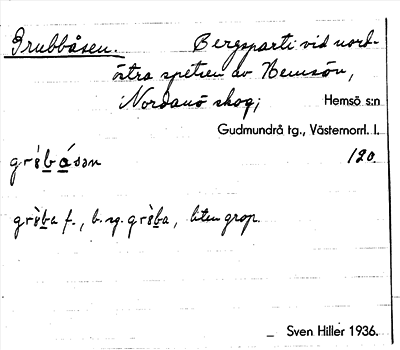 Grubbåsen. Bergsparti vid nord-
östra spetsen av Hemsön,
Nordanö skog; Hemsö s:n
Gudmundrå tg., Västernorrl. l.
120
grèbåsən
grèba f., b. sg. grèba, liten grop.
Sven Hiller 1936.